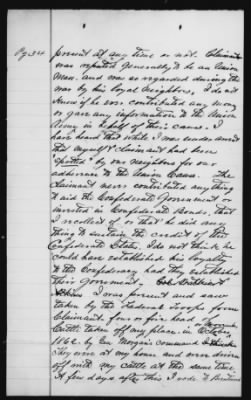 Pg 34
present at any time or not. Claimant
was reputed generally to be an Union
Man. and was so regarded during the
war by his loyal Neighbors, I do not
know if he ever contributed any
or gave any information to the Union
Army in behalf of their cause. I
have heard that while I was under
that myself & Claimant had been
"spotted" by our neighbors for our
adherence to the Union Cause. The
Claimant never contributed anything
to aid the Confederate Government or
invested in Confederate Bonds, that
I recollect of or that he did any
thing to sustain the credit of the
Confederate States, I do not think he
could have established his loyalty
to the Confederacy had they established
their Government,
I was present and saw
taken by the Federal troops from
Claimant four or five head of
Cattle taken off my place in
1862. by Gen Morgan's command
They were at my home and were driven
off with my cattle at the same time.
A few days after this I rode to